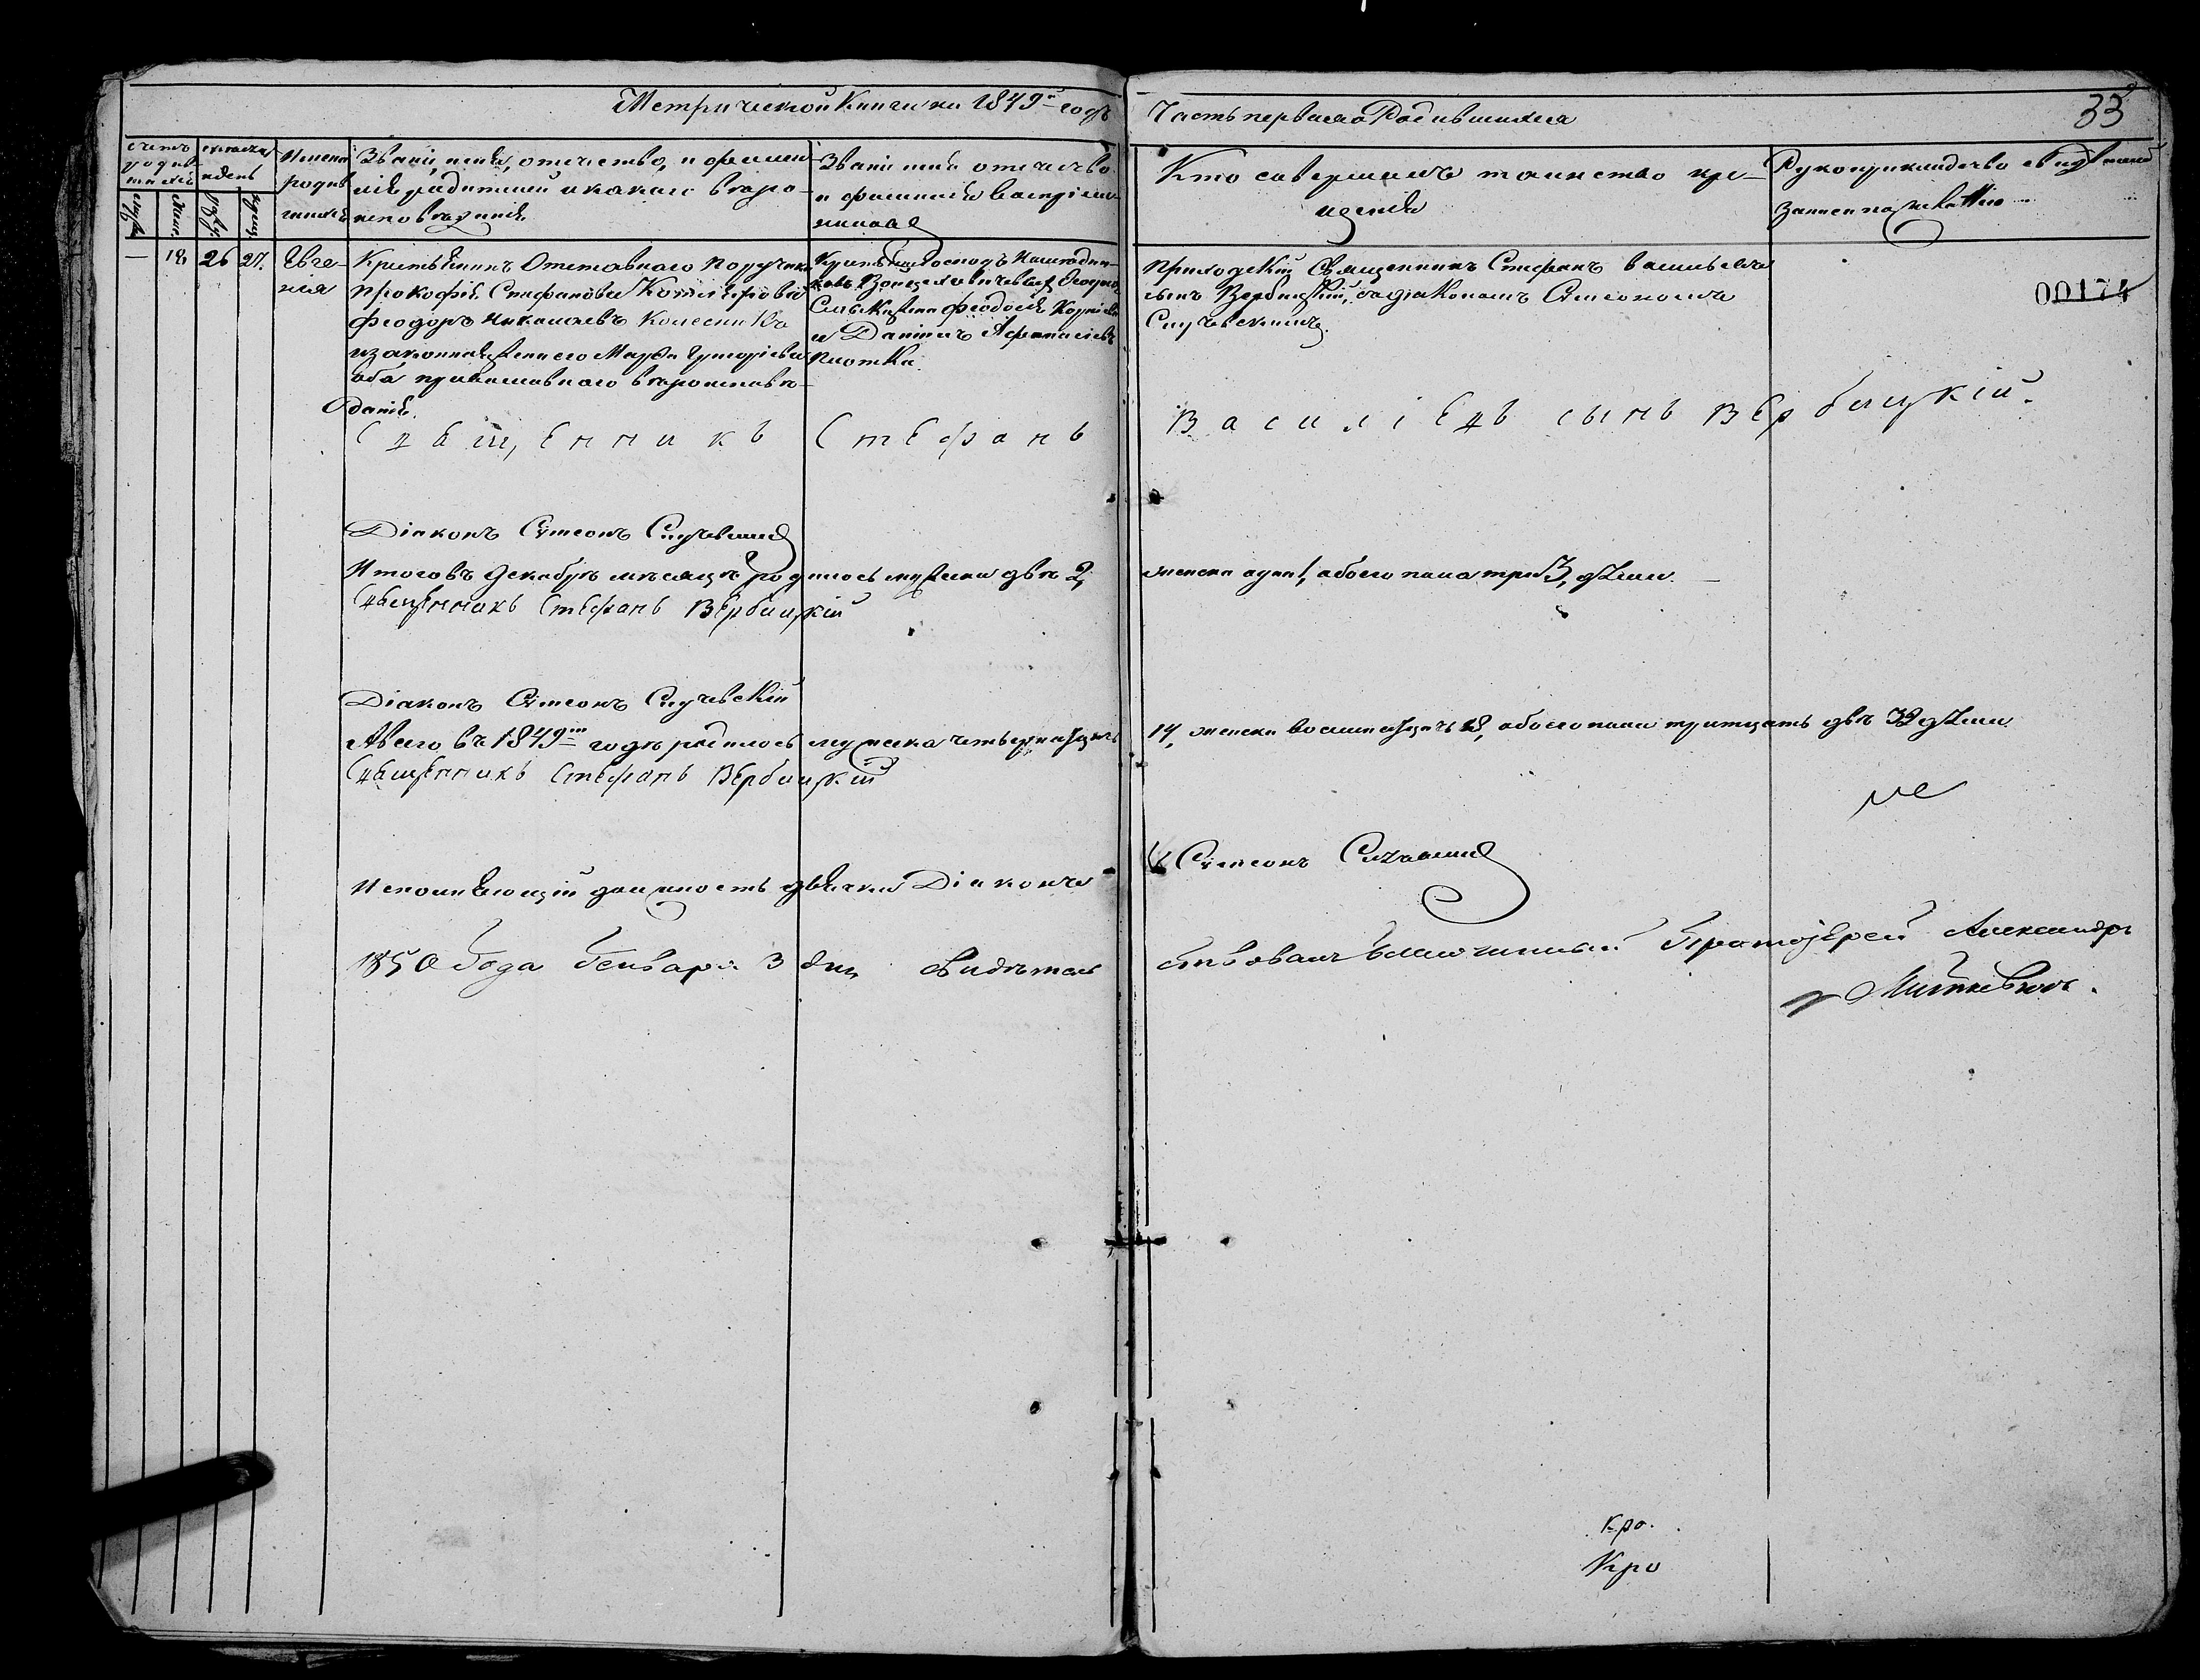 Метрической Книги на 1849й годъ
Часть первая о Родившихся
33
Счетъ родившихся
Мѣсяцъ и день
Имена родившихся
Званіе, имя, отчество, и фамилія родителей и какого вѣроисповѣданія
Званіе имя отчество и фамилія воспріемниковъ
Кто совершалъ таинство крещенія
Рукоприкладство свидѣтелей записи по желанію
— 18 26 27.
Евгенія
Крестьянинъ Отставнаго Поручика
Прокофія Стефанова
Феодоръ Николаевъ Колесникъ
и законная жена его Марфа Григорьева
оба православнаго вѣроисповѣданія.
Феодосія
и Даніилъ Афанасіевъ
Плотка.
Приходскій Священникъ Стефанъ Васильевъ
сынъ Вербицкій, съ діакономъ Симеономъ
Случевскимъ.
00174
Священникъ Стефанъ Василіевъ сынъ Вербицкій.
Діаконъ Симеонъ Случевскій
Итого въ Декабрѣ мѣсяцѣ родилось мужеска двѣ 2, женска одна 1, обоего пола три 3, души.
Священникъ Стефанъ Вербицкій
Діаконъ Симеонъ Случевскій
А всего въ 1849мъ годѣ родилось мужеска четырнадцать 14, женска восемнадцать 18, обоего пола тритцать двѣ 32 души
Священникъ Стефанъ Вербицкій
Исполняющій должность дьячка Діаконъ Симеонъ Случевскій
1850 Года Генваря 3 дня свидѣтельствовалъ Благочинный Протоіерей Александръ
кро.
Кро